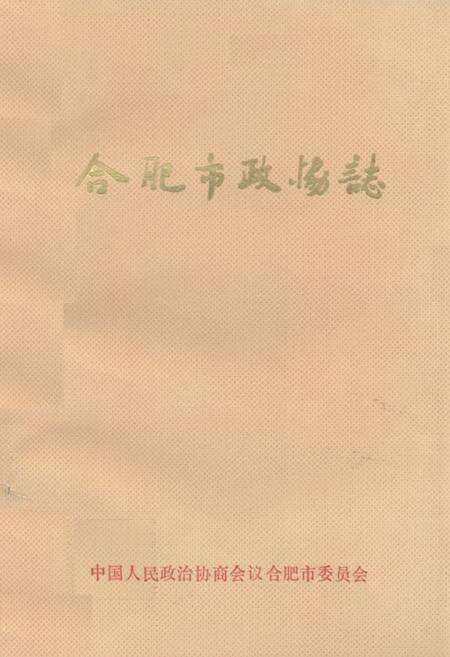 合肥市政协誌
中国人民政治协商会议合肥市委员会